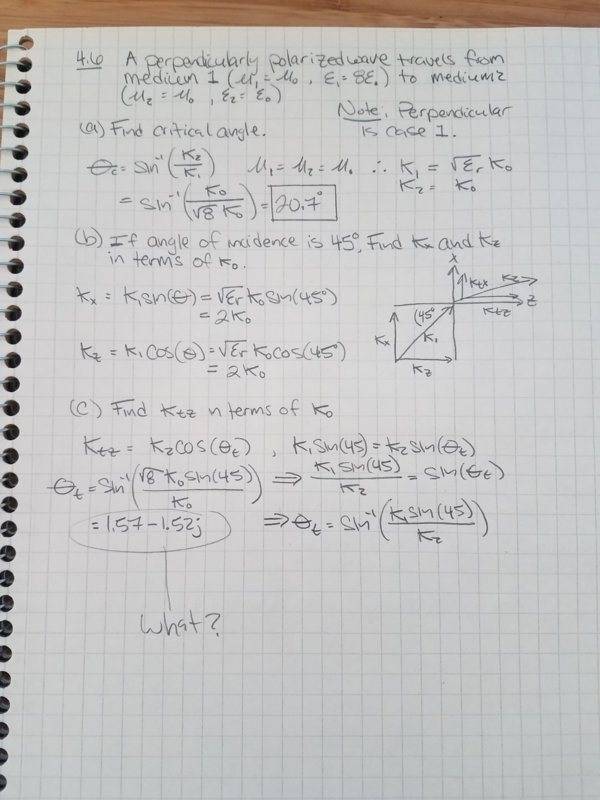 4.6 A perpendicularly polarized wave travels from
medium 1 (μ₁ = μ₀ , ε₁ = 8ε₀) to medium 2
(μ₂ = μ₀ , ε₂ = ε₀)
Note: Perpendicular
is case 1.
(a) Find critical angle.
θc = sin⁻¹(K₂/K₁) μ₁ = μ₂ = μ₀ ∴ K₁ = √εr K₀
K₂ = K₀
= sin⁻¹(K₀/(√8 K₀)) = 20.7°
(b) If angle of incidence is 45°, Find Kx and Kz
in terms of K₀.
Kx = K₁sin(θ) = √εr K₀sin(45°)
= 2K₀
Kz = K₁cos(θ) = √εr K₀cos(45°)
= 2K₀
x
Ktx
K₂
z
Ktz
45°
K₁
Kx
Kz
(c) Find Ktz n terms of K₀
Ktz = K₂cos(θt) , K₁sin(45) = K₂sin(θt)
θt = sin⁻¹(√8 K₀sin(45)/K₀) ⇒ K₁sin(45)/K₂ = sin(θt)
= 1.57 - 1.52j ⇒ θt = sin⁻¹(K₁sin(45)/K₂)
What?